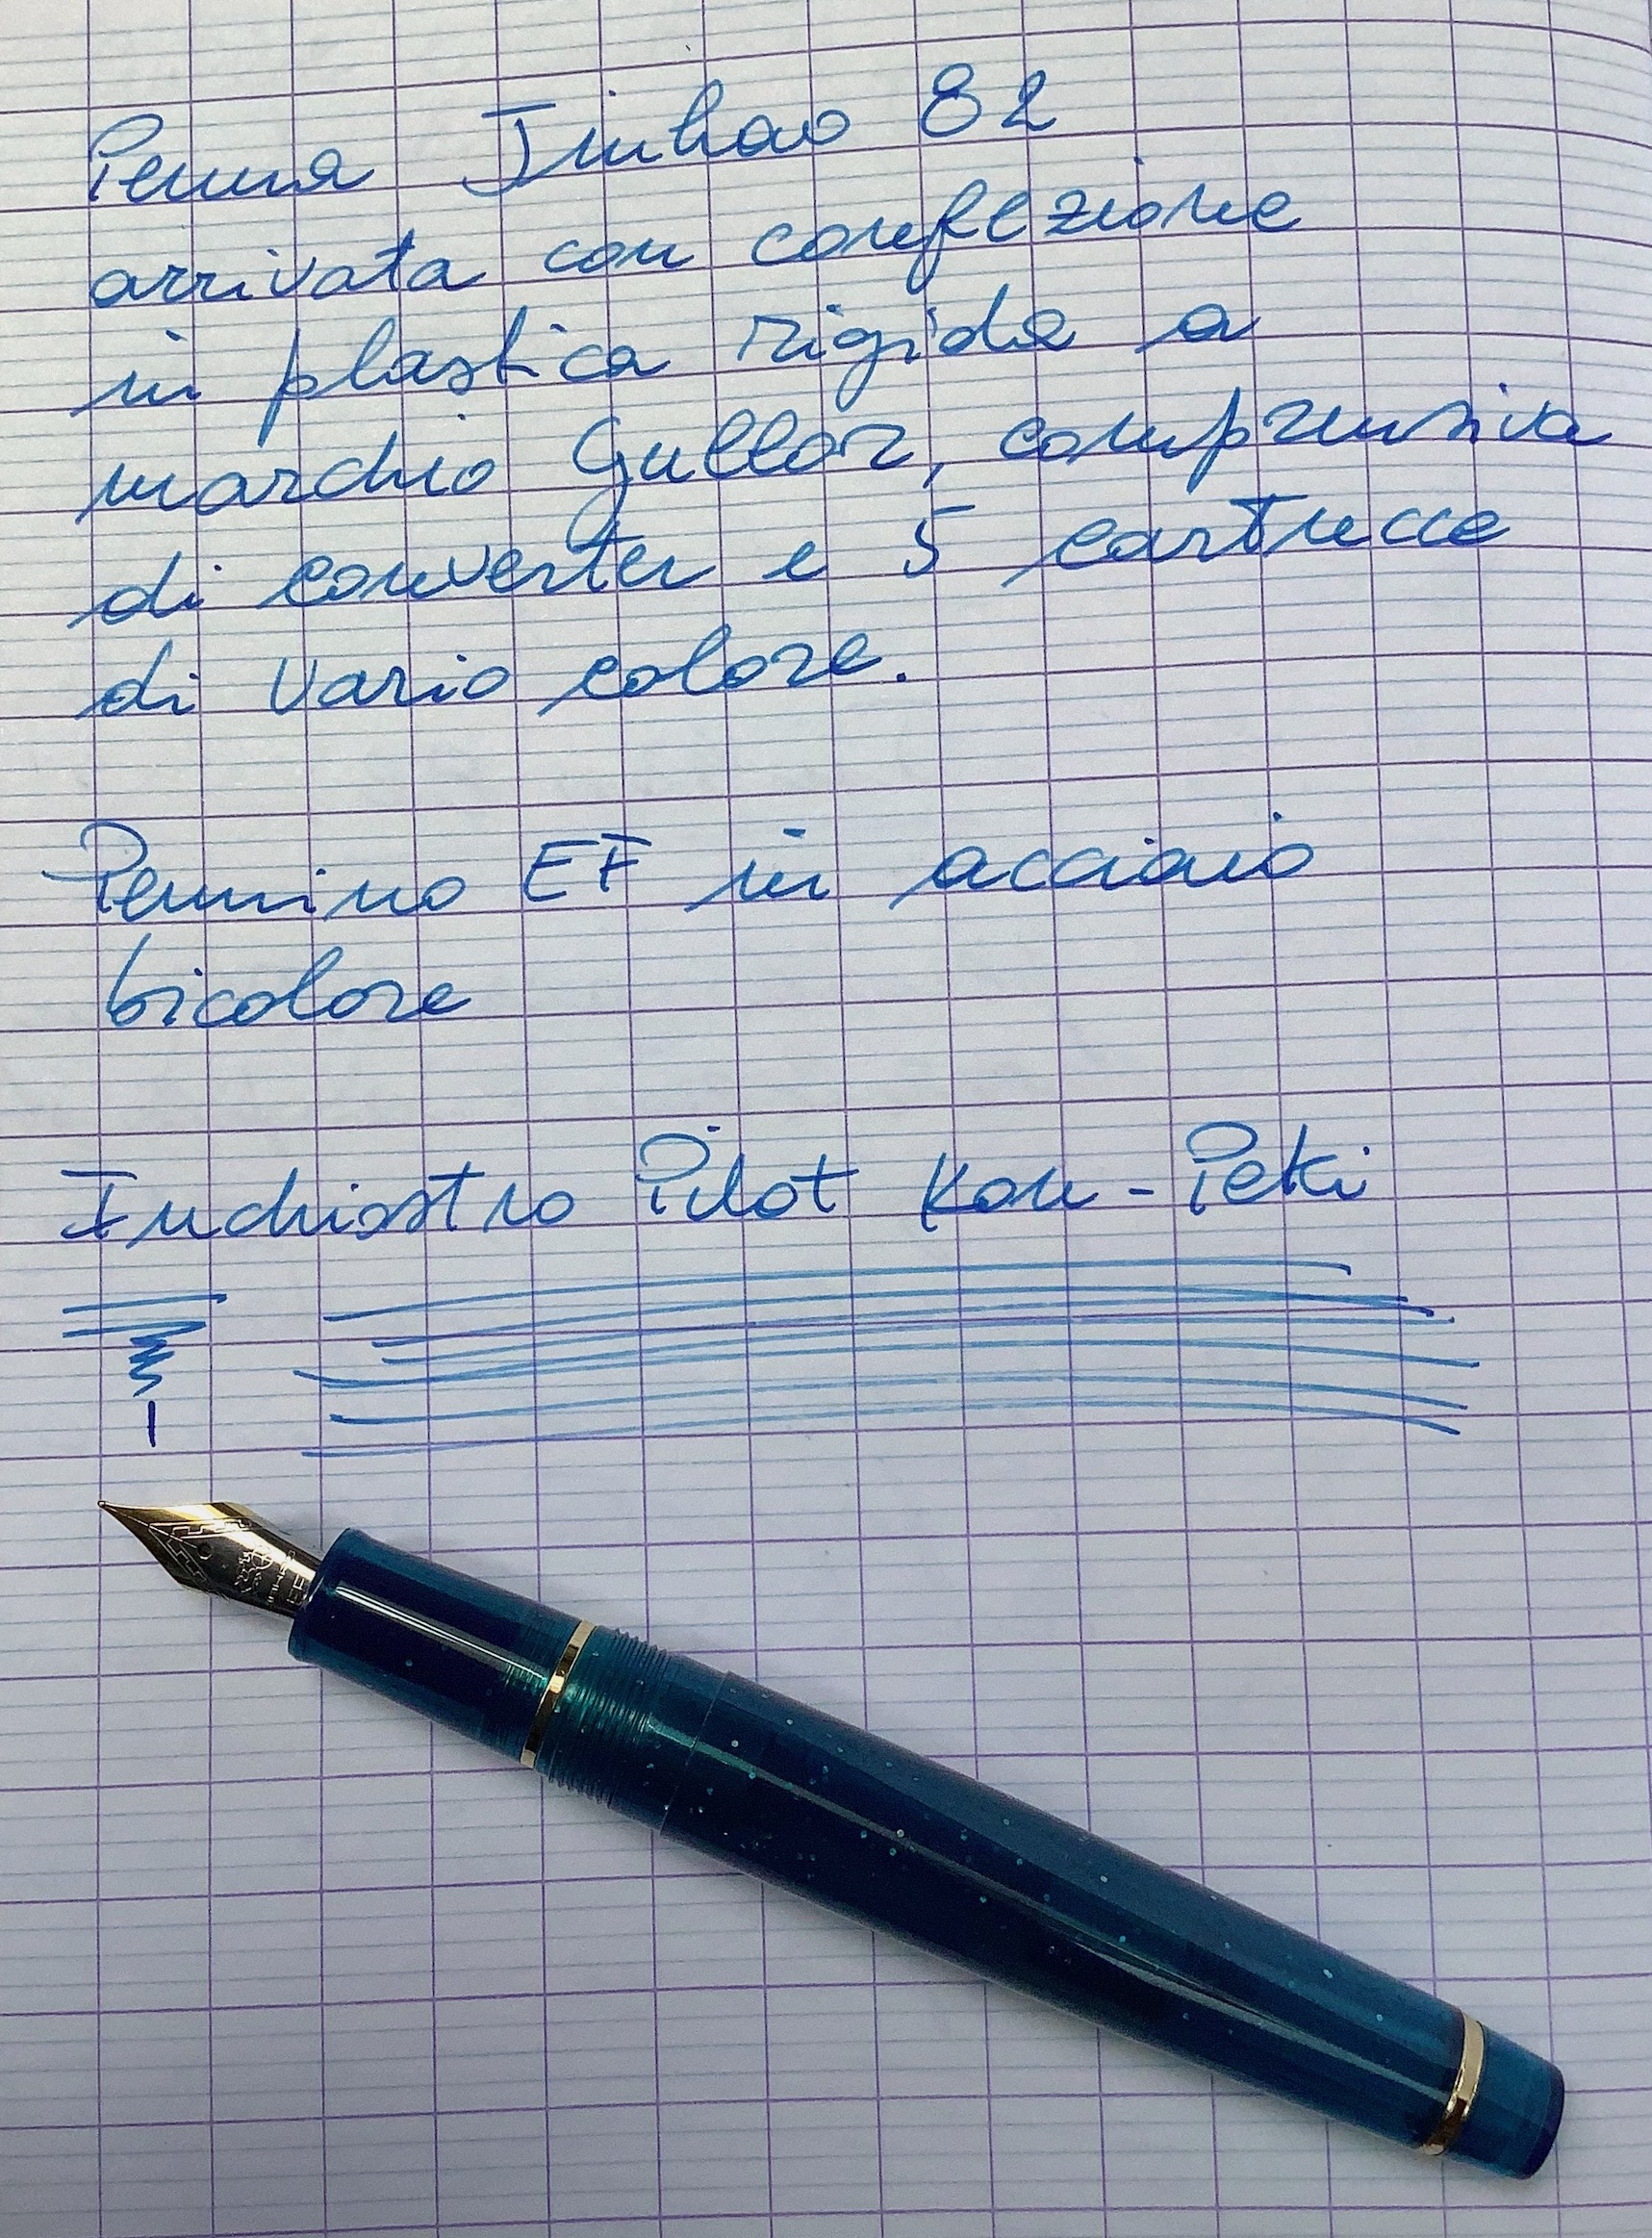 Penna Jinhao 82
arrivata con confezione
in plastica rigida a
marchio Gullor, comprensiva
di converter e 5 cartucce
di vario colore.
Pennino EF in acciaio
bicolore
Inchiostro Pilot Kon-Peki
EF